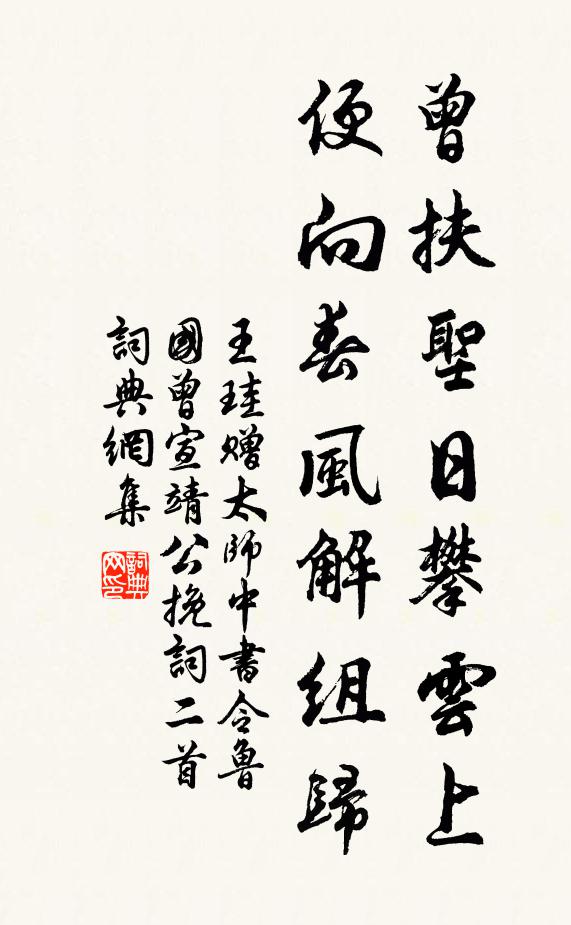 曾扶聖日攀雲上
便向春風解組歸
王珪贈太師中書令魯
國曾宣靖公挽詞二首
詞典網集
詞典
网印